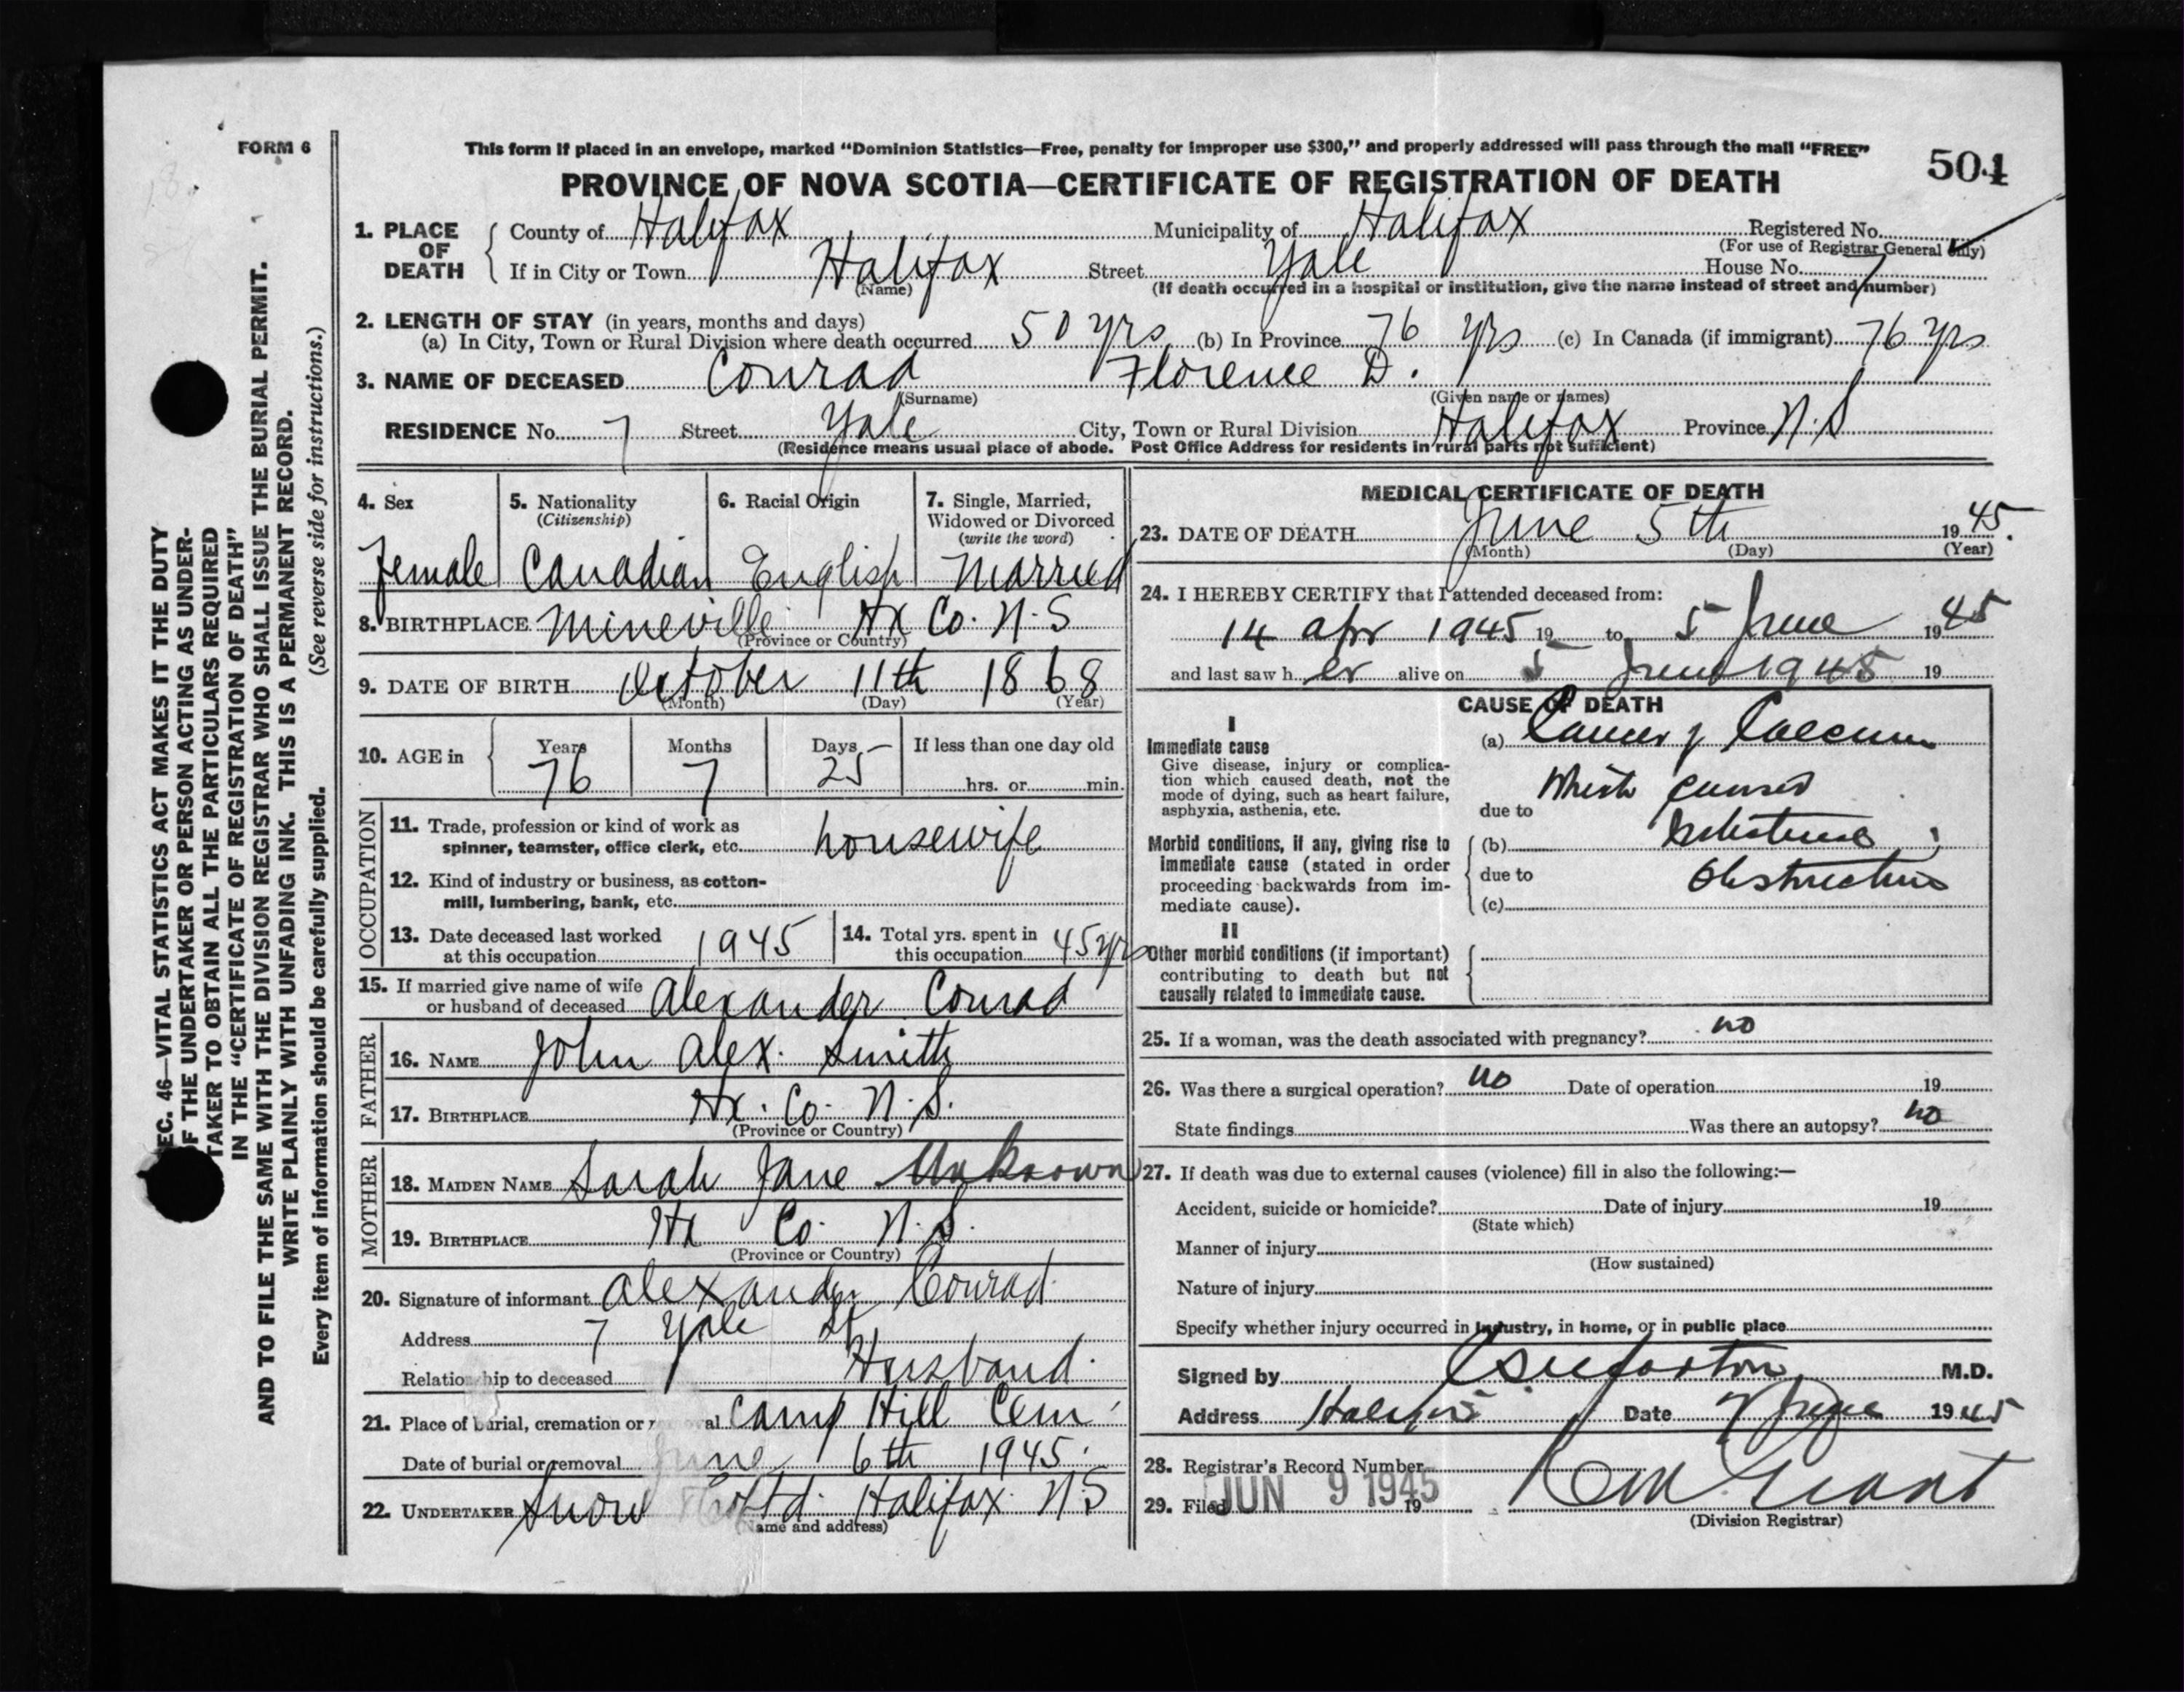 FORM 6
This form if placed in an envelope, marked “Dominion Statistics—Free, penalty for improper use $300,” and properly addressed will pass through the mail “FREE”
504
PROVINCE OF NOVA SCOTIA—CERTIFICATE OF REGISTRATION OF DEATH
1. PLACE OF DEATH
County of Halifax Municipality of Halifax Registered No.
(For use of Registrar General only)
If in City or Town Halifax Street Yale House No. 7
(Name) (If death occurred in a hospital or institution, give the name instead of street and number)
2. LENGTH OF STAY (in years, months and days)
(a) In City, Town or Rural Division where death occurred 50 yrs (b) In Province 76 yrs (c) In Canada (if immigrant) 76 yrs
3. NAME OF DECEASED Conrad Florence D.
(Surname) (Given name or names)
RESIDENCE No. 7 Street Yale City, Town or Rural Division Halifax Province N.S
(Residence means usual place of abode. Post Office Address for residents in rural parts not sufficient)
4. Sex
Female
5. Nationality
(Citizenship)
Canadian
6. Racial Origin
English
7. Single, Married,
Widowed or Divorced
(write the word)
Married
8. BIRTHPLACE Mineville Hx Co. N.S
(Province or Country)
9. DATE OF BIRTH October 11th 1868
(Month) (Day) (Year)
10. AGE in
Years Months Days If less than one day old
76 7 25 hrs. or min.
OCCUPATION
11. Trade, profession or kind of work as
spinner, teamster, office clerk, etc. housewife
12. Kind of industry or business, as cotton-
mill, lumbering, bank, etc.
13. Date deceased last worked
at this occupation 1945
14. Total yrs. spent in
this occupation 45 yrs
15. If married give name of wife
or husband of deceased Alexander Conrad
FATHER
16. NAME John Alex. Smith
17. BIRTHPLACE Hx. Co. N.S.
(Province or Country)
MOTHER
18. MAIDEN NAME Sarah Jane Unknown
19. BIRTHPLACE Hx Co. N.S.
(Province or Country)
20. Signature of informant Alexander Conrad
Address 7 Yale St
Relationship to deceased Husband
21. Place of burial, cremation or removal Camp Hill Cem
Date of burial or removal June 6th 1945
22. UNDERTAKER Snow & Co Ltd. Halifax N.S
(Name and address)
MEDICAL CERTIFICATE OF DEATH
23. DATE OF DEATH June 5th 1945
(Month) (Day) (Year)
24. I HEREBY CERTIFY that I attended deceased from:
14 Apr 1945 19 to 5 June 1945
and last saw her alive on 5 June 1945 19
CAUSE OF DEATH
I
Immediate cause
Give disease, injury or complica-
tion which caused death, not the
mode of dying, such as heart failure,
asphyxia, asthenia, etc.
(a) Cancer of Caecum
which caused
due to
Morbid conditions, if any, giving rise to
immediate cause (stated in order
proceeding backwards from im-
mediate cause).
(b)
due to Obstruction
(c)
II
Other morbid conditions (if important)
contributing to death but not
causally related to immediate cause.
25. If a woman, was the death associated with pregnancy? no
26. Was there a surgical operation? no Date of operation 19
State findings Was there an autopsy? no
27. If death was due to external causes (violence) fill in also the following:—
Accident, suicide or homicide? Date of injury 19
(State which)
Manner of injury
(How sustained)
Nature of injury
Specify whether injury occurred in industry, in home, or in public place
Signed by M.D.
Address Halifax Date 7 June 1945
28. Registrar's Record Number
29. Filed JUN 9 1945 19
(Division Registrar)
EC. 46—VITAL STATISTICS ACT MAKES IT THE DUTY
OF THE UNDERTAKER OR PERSON ACTING AS UNDER-
TAKER TO OBTAIN ALL THE PARTICULARS REQUIRED
IN THE “CERTIFICATE OF REGISTRATION OF DEATH”
AND TO FILE THE SAME WITH THE DIVISION REGISTRAR WHO SHALL ISSUE THE BURIAL PERMIT.
WRITE PLAINLY WITH UNFADING INK. THIS IS A PERMANENT RECORD.
Every item of information should be carefully supplied. (See reverse side for instructions.)